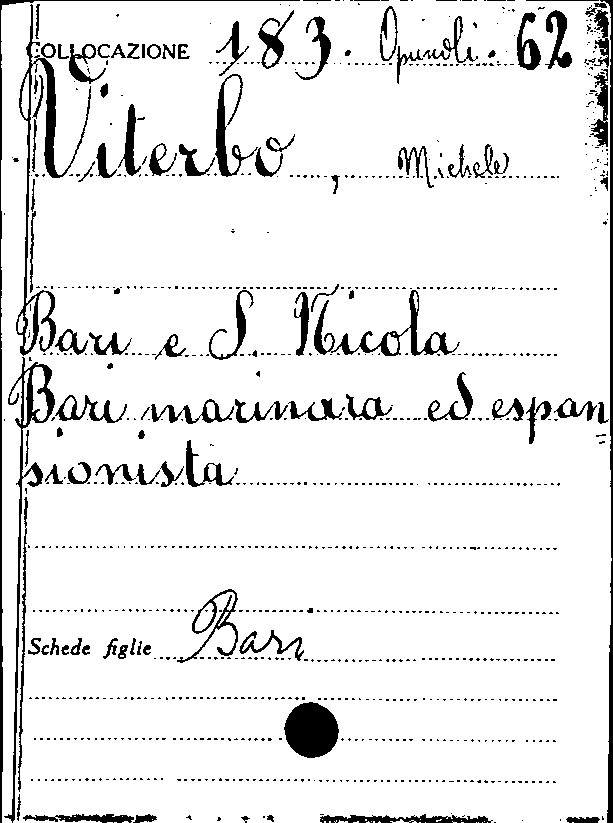 COLLOCAZIONE 183. Opuscoli. 62
Viterbo, Michele
Bari e S. Nicola
Bari marinara ed espan=
sionista
Schede figlie Bari